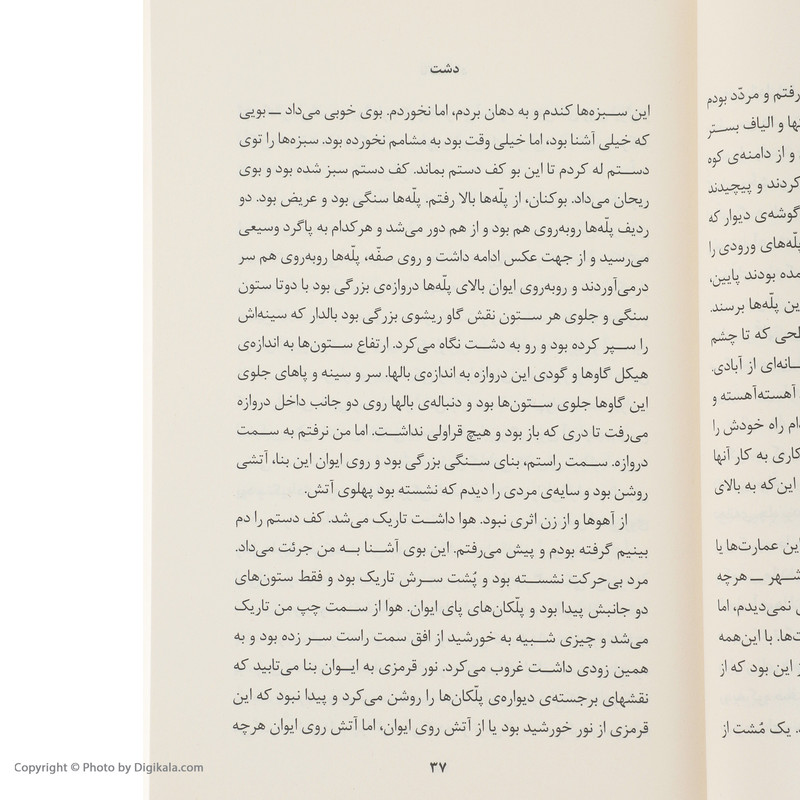 دشت
این سبزه‌ها کندم و به دهان بردم، اما نخوردم. بوی خوبی می‌داد ــ بویی
که خیلی آشنا بود، اما خیلی وقت بود به مشامم نخورده بود. سبزه‌ها را توی
دستم له کردم تا این بو کف دستم بماند. کف دستم سبز شده بود و بوی
ریحان می‌داد. بوکنان، از پلّه‌ها بالا رفتم. پلّه‌ها سنگی بود و عریض بود. دو
ردیف پلّه‌ها روبه‌روی هم بود و از هم دور می‌شد و هرکدام به پاگرد وسیعی
می‌رسید و از جهت عکس ادامه داشت و روی صفّه، پلّه‌ها روبه‌روی هم سر
درمی‌آوردند و روبه‌روی ایوان بالای پلّه‌ها دروازه‌ی بزرگی بود با دوتا ستون
سنگی و جلوی هر ستون نقش گاو ریشوی بزرگی بود بالدار که سینه‌اش
را سپر کرده بود و رو به دشت نگاه می‌کرد. ارتفاع ستون‌ها به اندازه‌ی
هیکل گاوها و گودی این دروازه به اندازه‌ی بالها. سر و سینه و پاهای جلوی
این گاوها جلوی ستون‌ها بود و دنباله‌ی بالها روی دو جانب داخل دروازه
می‌رفت تا دری که باز بود و هیچ قراولی نداشت. اما من نرفتم به سمت
دروازه. سمت راستم، بنای سنگی بزرگی بود و روی ایوان این بنا، آتشی
روشن بود و سایه‌ی مردی را دیدم که نشسته بود پهلوی آتش.
از آهوها و از زن اثری نبود. هوا داشت تاریک می‌شد. کف دستم را دم
بینیم گرفته بودم و پیش می‌رفتم. این بوی آشنا به من جرئت می‌داد.
مرد بی‌حرکت نشسته بود و پُشت سرش تاریک بود و فقط ستون‌های
دو جانبش پیدا بود و پلّکان‌های پای ایوان. هوا از سمت چپ من تاریک
می‌شد و چیزی شبیه به خورشید از افق سمت راست سر زده بود و به
همین زودی داشت غروب می‌کرد. نور قرمزی به ایوان بنا می‌تابید که
نقشهای برجسته‌ی دیواره‌ی پلّکان‌ها را روشن می‌کرد و پیدا نبود که این
قرمزی از نور خورشید بود یا از آتش روی ایوان، اما آتش روی ایوان هرچه
۳۷
رفتم و مردّد بودم
و الیاف بستر
و از دامنه‌ی کوه
کردند و پیچیدند
گوشه‌ی دیوار که
پلّه‌های ورودی را
بودند پایین،
پلّه‌ها برسند.
که تا چشم
از آبادی.
آهسته‌آهسته و
راه خودش را
کاری به کار آنها
این‌که به بالای
این عمارت‌ها یا
شهر ــ هرچه
نمی‌دیدم، اما
با این‌همه
این بود که از
یک مُشت از
Copyright © Photo by Digikala.com